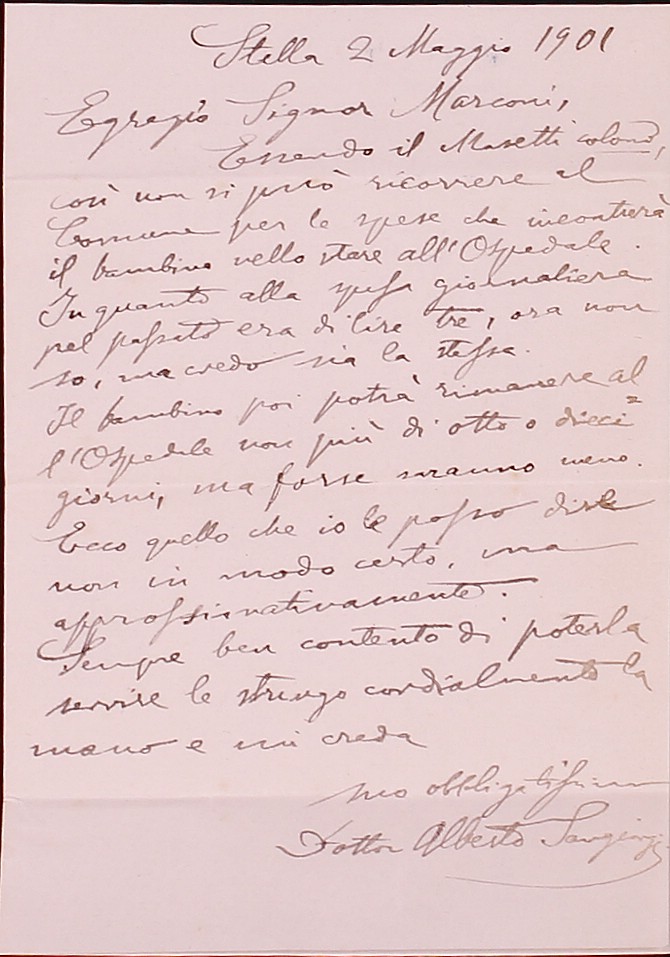 Stella 2 Maggio 1901
Egregio Signor Marconi,
Essendo il Masetti colono,
così non si può ricorrere al
Comune per le spese che incontrerà
il bambino nello stare all'Ospedale.
In quanto alla spesa giornaliera
pel passato era di lire tre, ora non
so, ma credo sia la stessa.
Il bambino poi potrà rimanere al
l'Ospedale non più di otto o dieci
giorni, ma forse saranno meno.
Ecco quello che io le posso dirle
non in modo certo, ma
approssimativamente.
Sempre ben contento di poterla
servire le stringo cordialmente la
mano e mi creda
suo obbligatissimo
Dottor Alberto